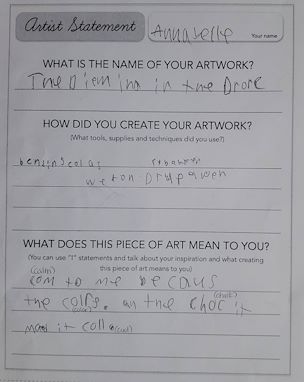 Artist Statement
Annabelle
Your name
WHAT IS THE NAME OF YOUR ARTWORK?
The Diemind in the Drore
HOW DID YOU CREATE YOUR ARTWORK?
(What tools, supplies and techniques did you use?)
wet on Dry
WHAT DOES THIS PIECE OF ART MEAN TO YOU?
(You can use "I" statements and talk about your inspiration and what creating
this piece of art means to you)
(calm)
com to me becaus
(chalk)
the colrs. an the choc
it